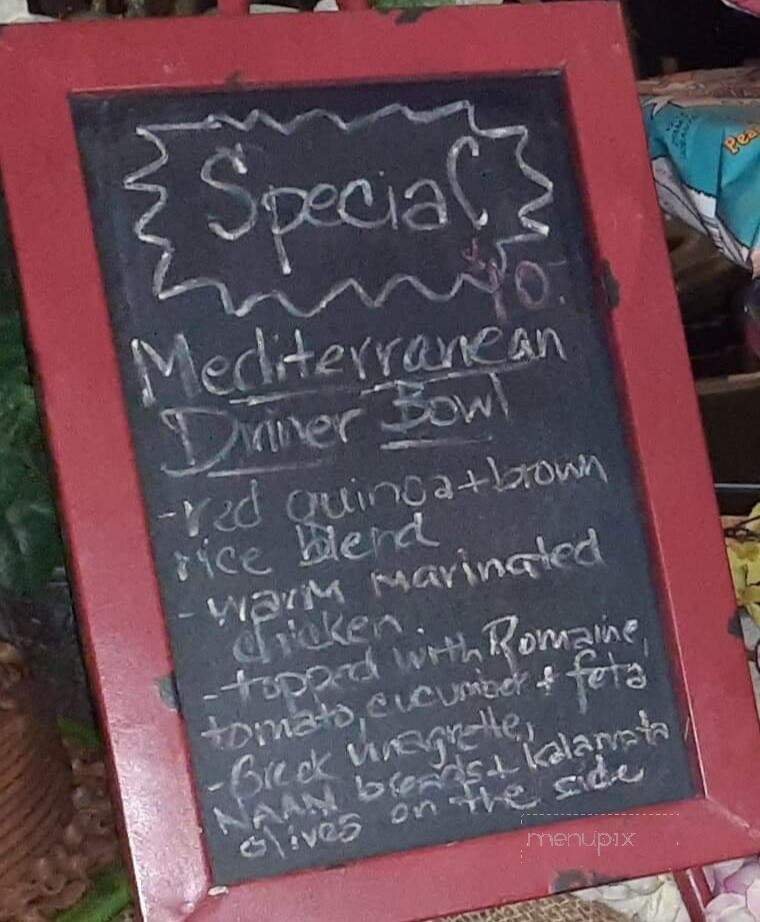 Special
$10.
Mediterranean
Dinner Bowl
-red quinoa+brown
rice blend
-warm marinated
chicken
-topped with Romaine,
tomato, cucumber + feta
-Greek Vinagrette,
NAAN breads + kalamata
olives on the side
menupix
Pea